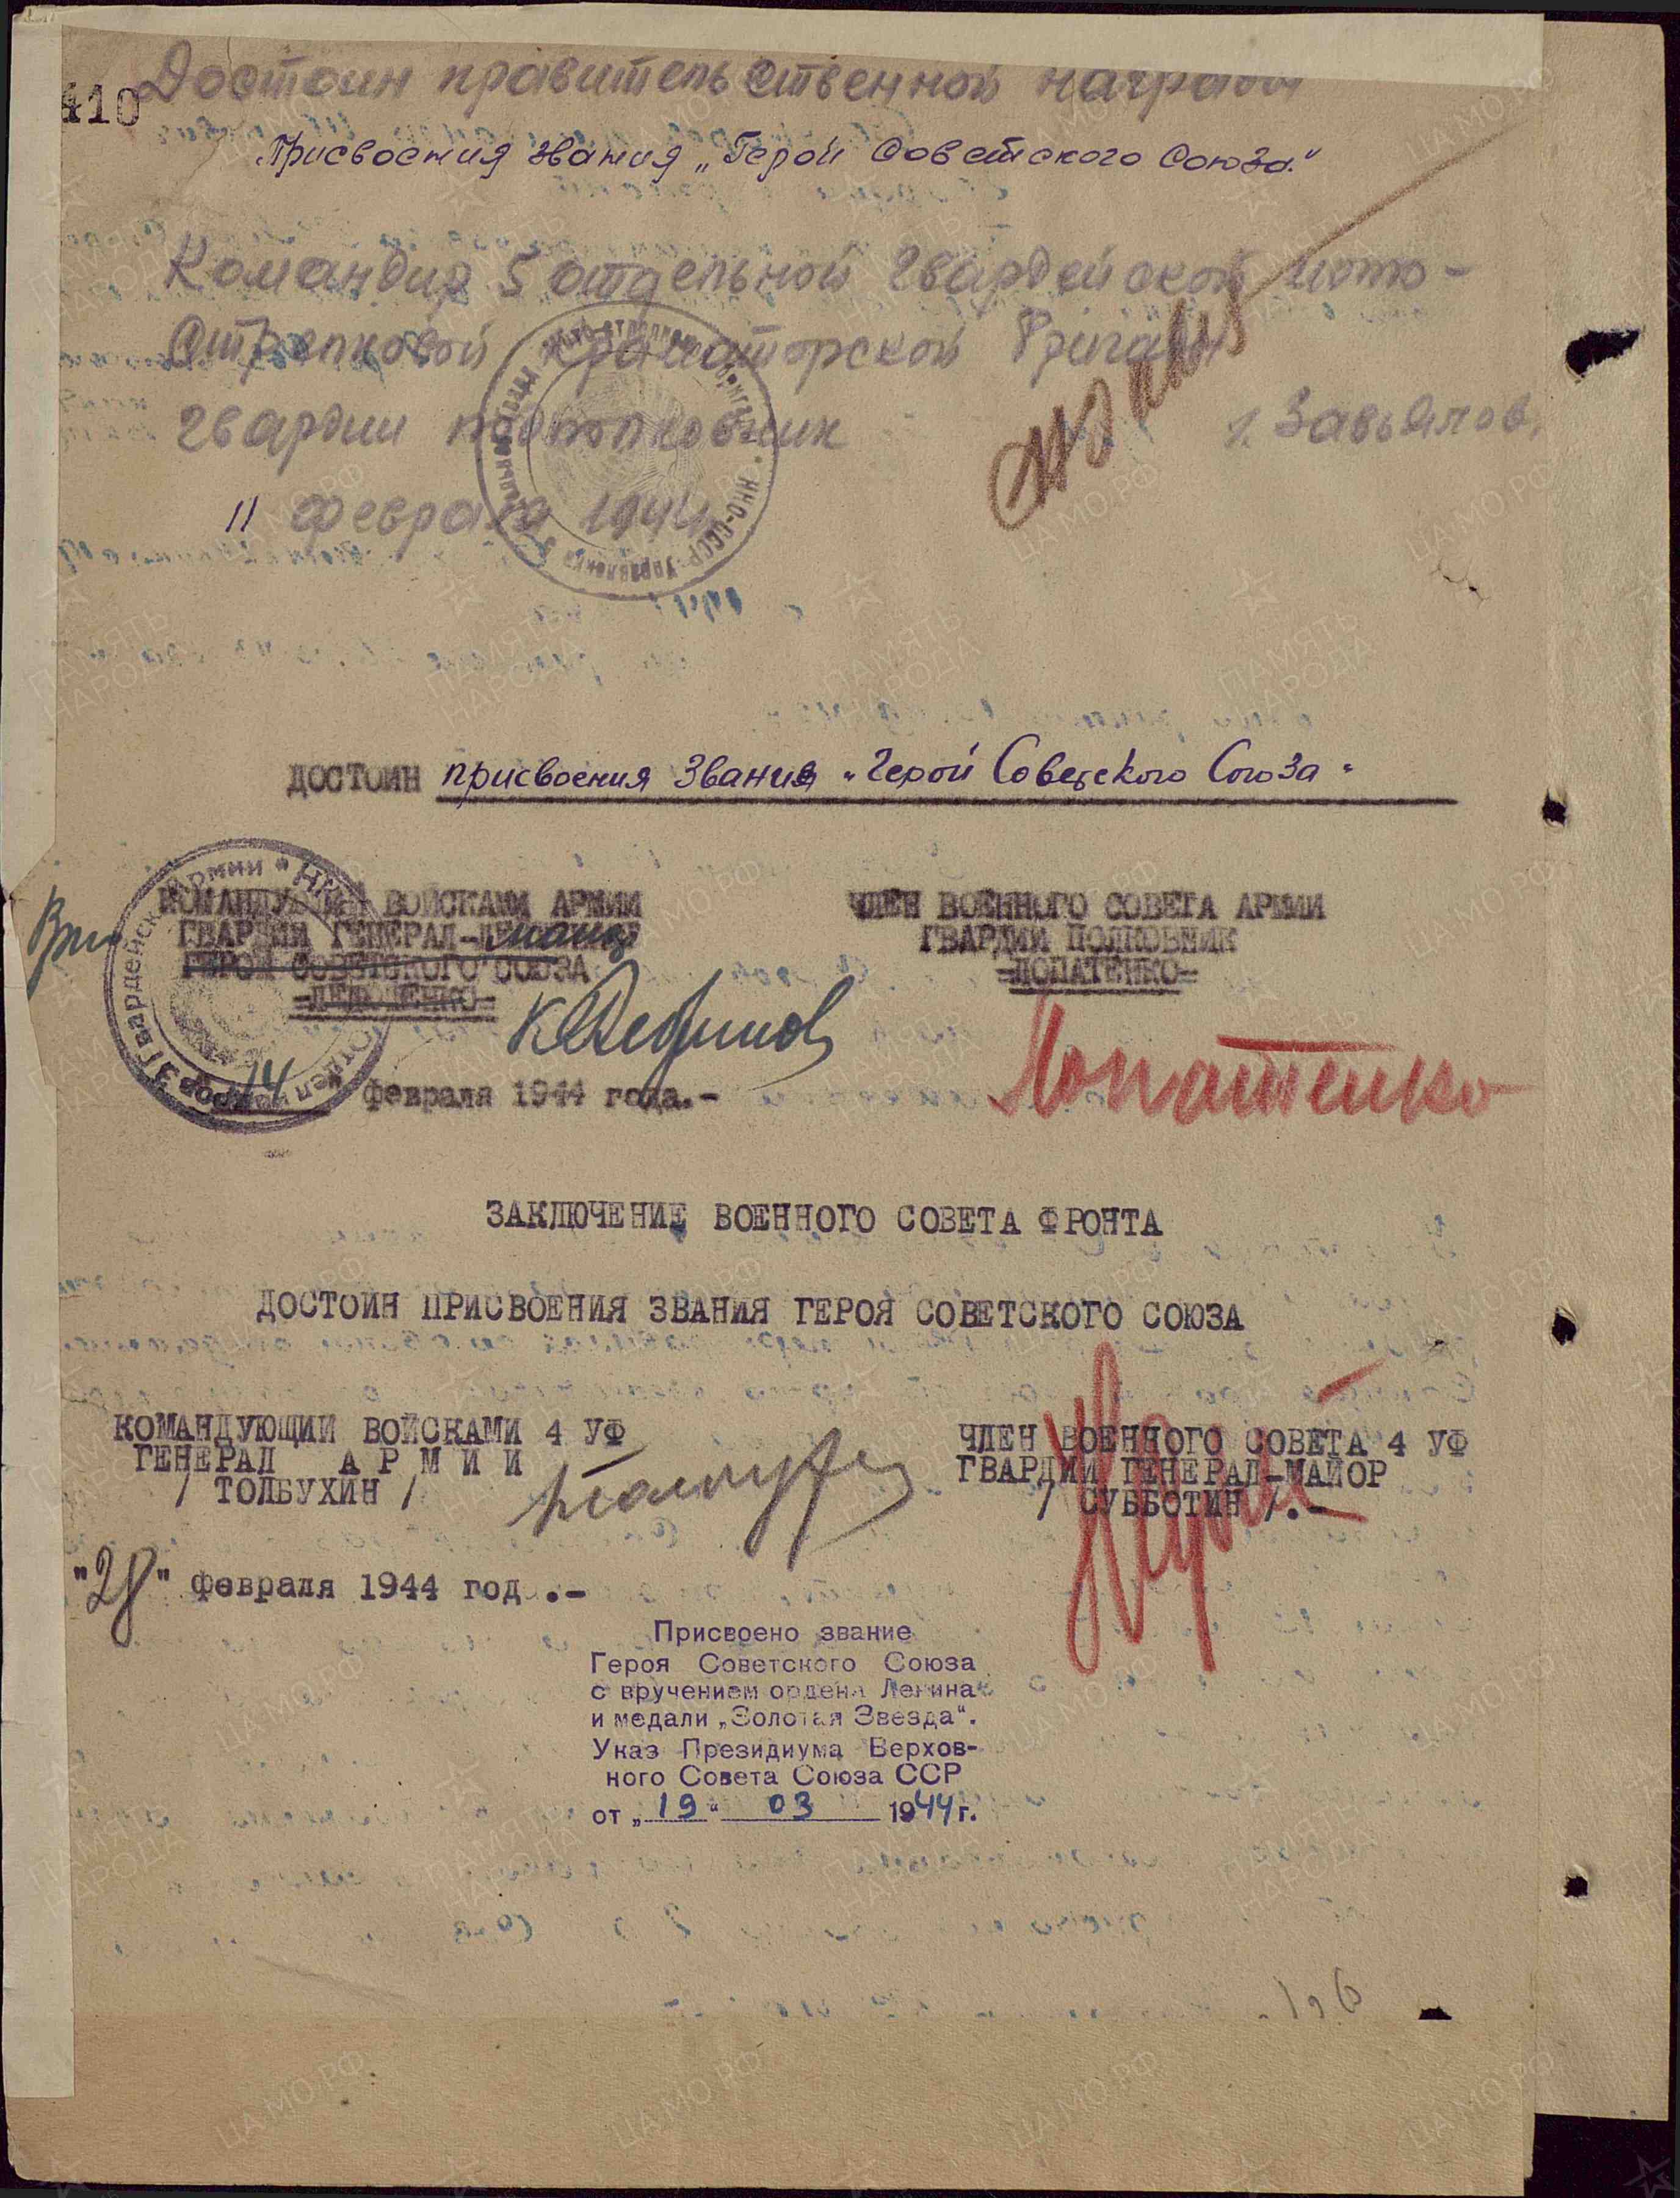 410
Достоин правительственной награды
Присвоения звания „Герой Советского Союза."
Командир 5 отдельной гвардейской мото-
стрелковой Краматорской бригады
гвардии подполковник г. Завьялов.
11 февраля 1944
ДОСТОИН присвоения звания „Герой Советского Союза"
Врио
КОМАНДУЮЩИЙ ВОЙСКАМИ АРМИИ
ГВАРДИИ ГЕНЕРАЛ-
ГЕРОЙ СОВЕТСКОГО СОЮЗА
-ЛЕЛЮШЕНКО-
ЧЛЕН ВОЕННОГО СОВЕТА АРМИИ
ГВАРДИИ ПОЛКОВНИК
=ЛОПАТЕНКО=
Лопатенко
14 февраля 1944 года.-
ЗАКЛЮЧЕНИЕ ВОЕННОГО СОВЕТА ФРОНТА
ДОСТОИН ПРИСВОЕНИЯ ЗВАНИЯ ГЕРОЯ СОВЕТСКОГО СОЮЗА
КОМАНДУЮЩИЙ ВОЙСКАМИ 4 УФ
ГЕНЕРАЛ АРМИИ
/ ТОЛБУХИН /
ЧЛЕН ВОЕННОГО СОВЕТА 4 УФ
ГВАРДИИ ГЕНЕРАЛ-МАЙОР
/ СУББОТИН /.-
"28" февраля 1944 год .-
Присвоено звание
Героя Советского Союза
с вручением ордена Ленина
и медали „Золотая Звезда".
Указ Президиума Верхов-
ного Совета Союза ССР
от „19" 03 1944 г.